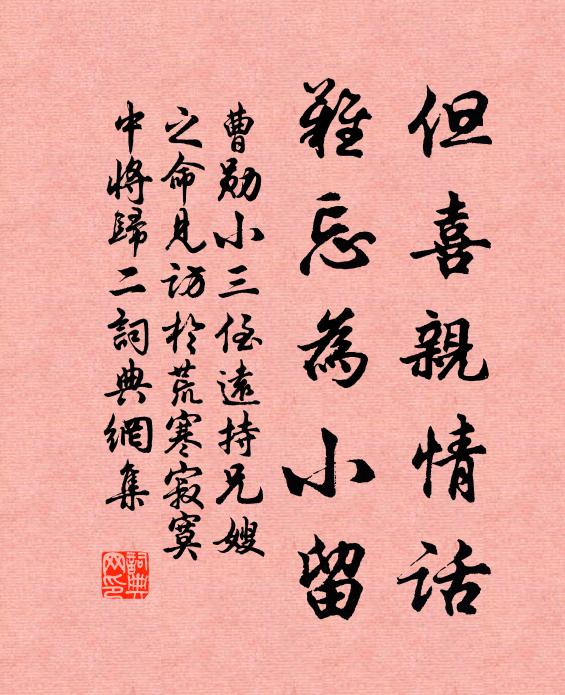 但喜親情話
難忘為小留
曹勛小三侄遠持兄嫂
之命見訪於荒寒寂寞
中將歸二詞典網集
詞典
网印